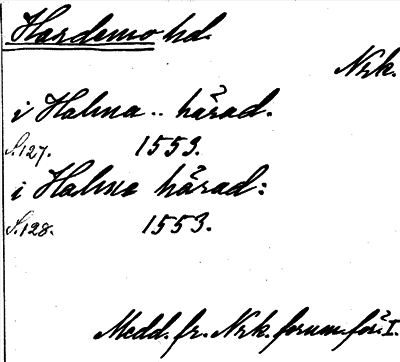 Hardemo hd.
Nrk.
i Halma .. härad.
S.127. 1553.
i Halma härad:
S.128. 1553.
Medd. fr. Nrk. fornm.för. I.